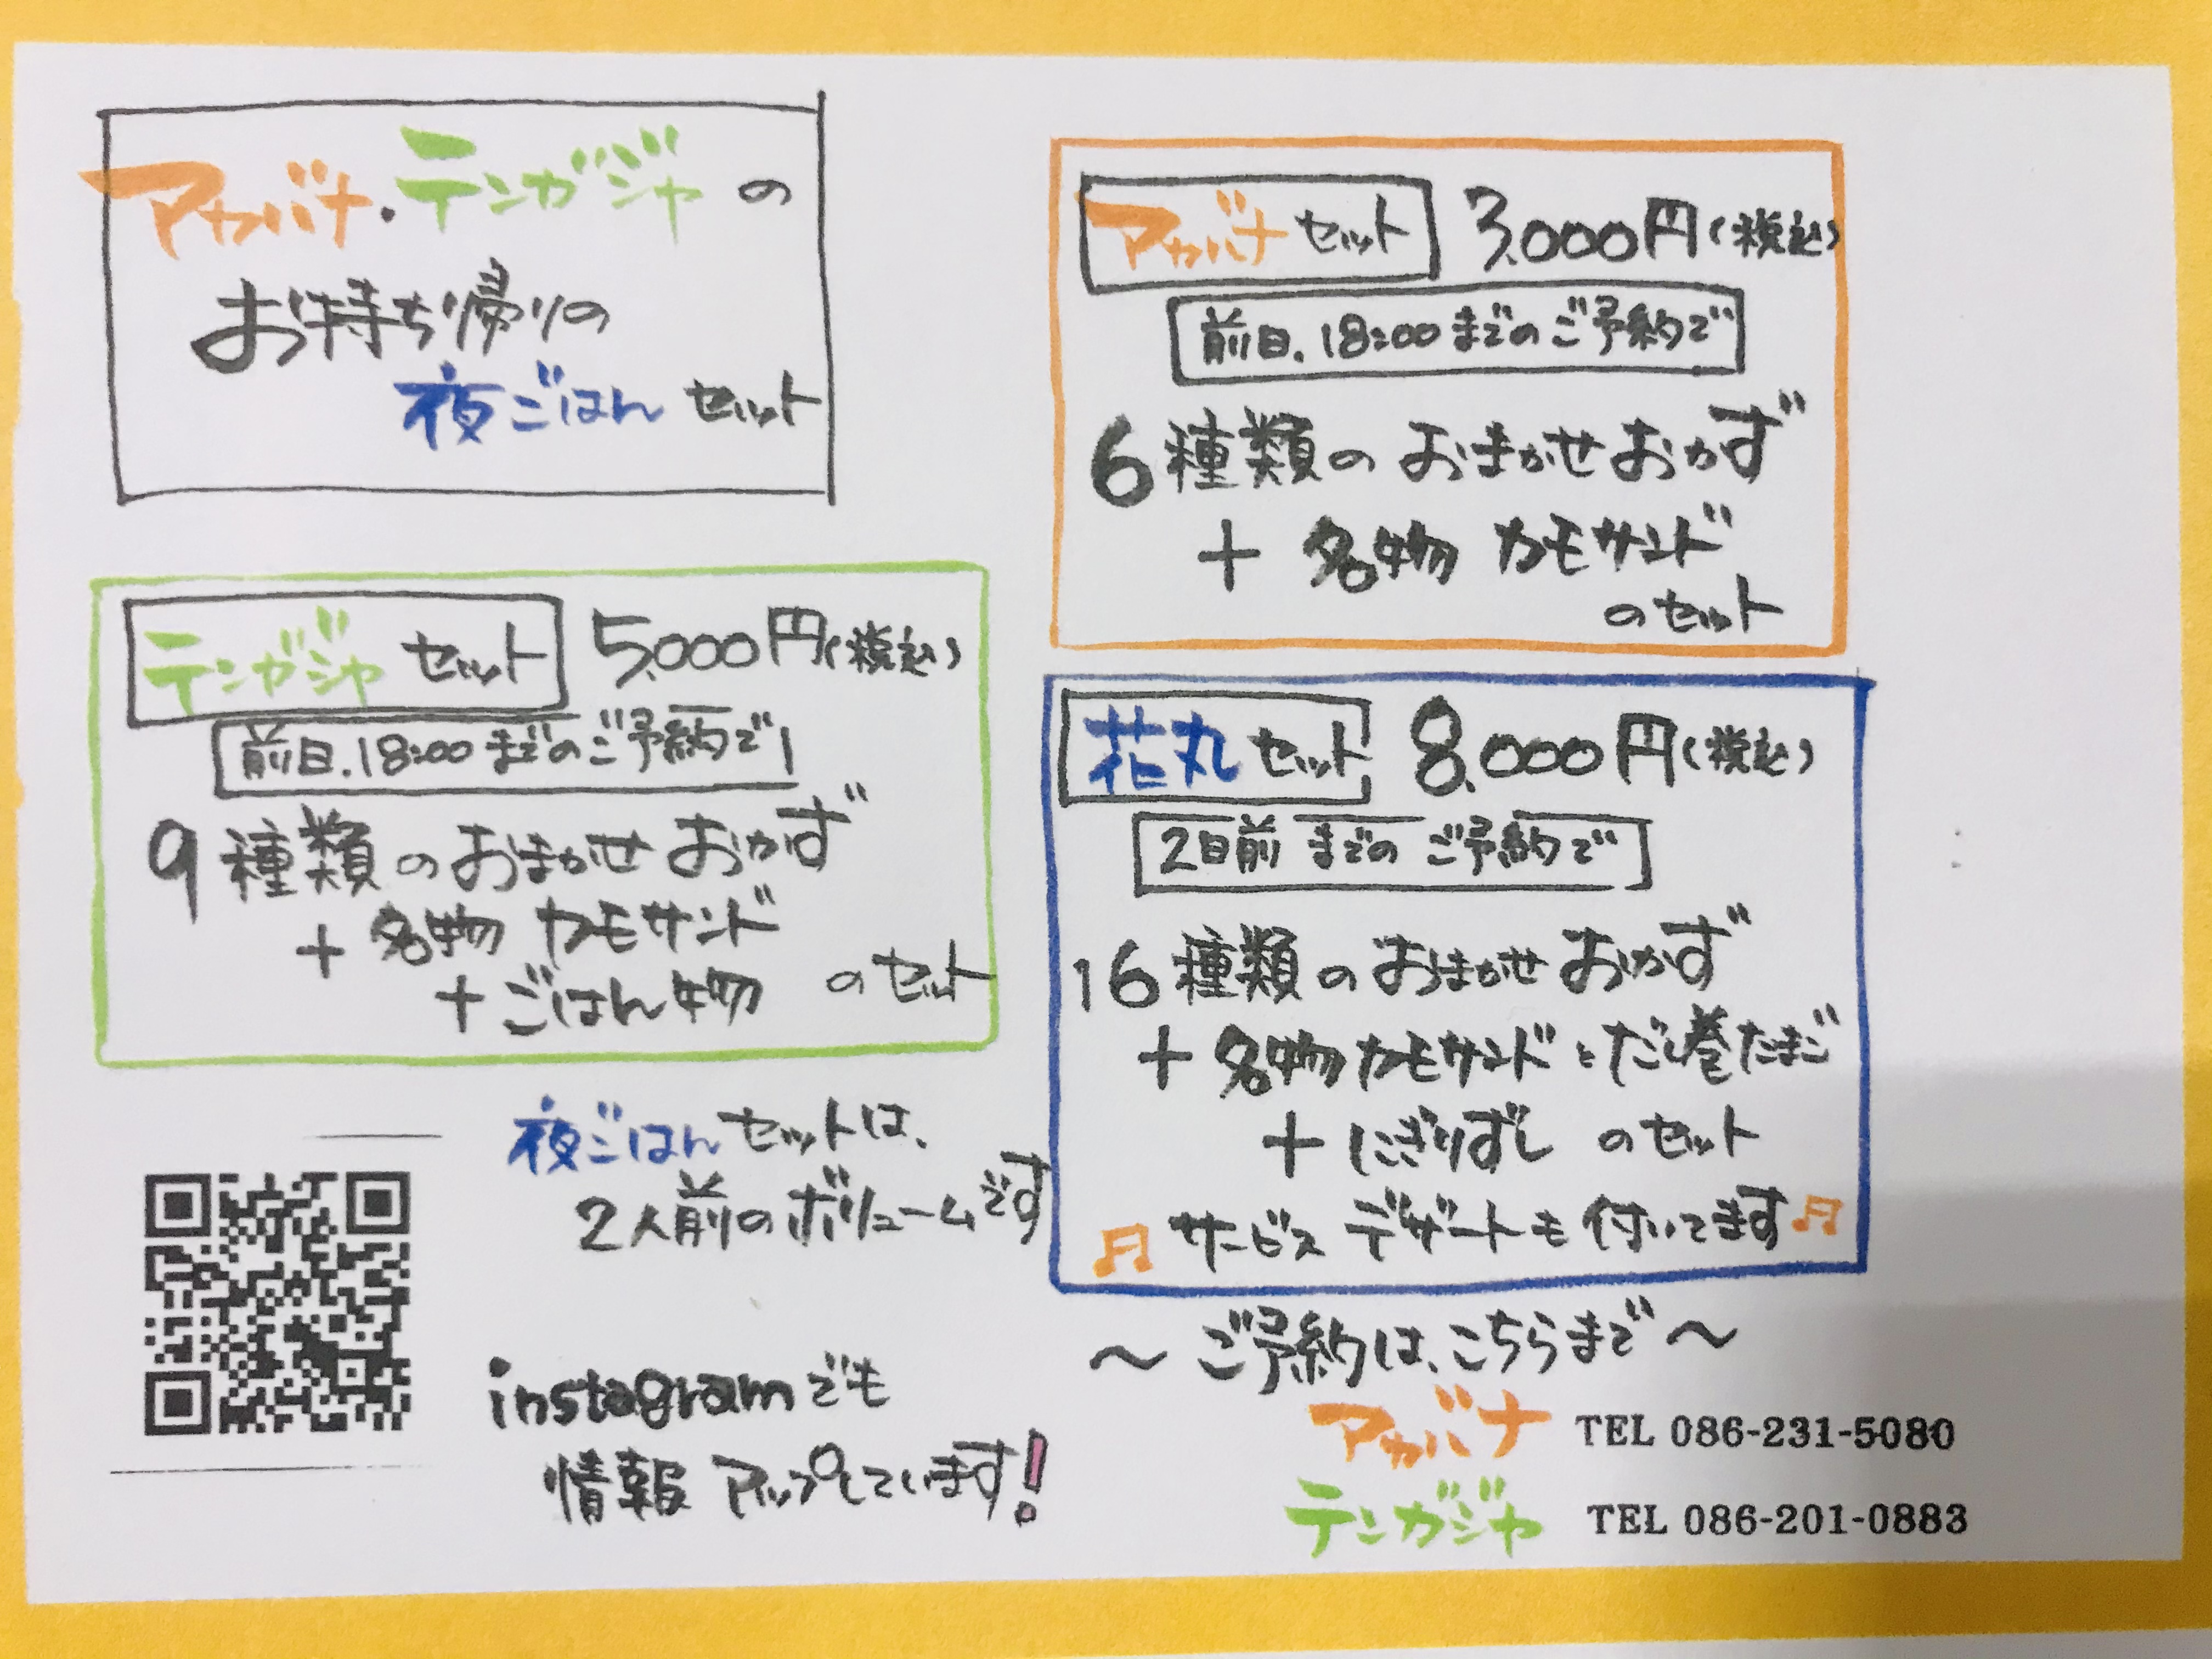 アカバナ・テンガジャの
お持ち帰りの
夜ごはんセット
アカバナセット 3,000円(税込)
前日.18:00までのご予約で
6種類のおまかせおかず
+ 名物 カモサンド
のセット
テンガジャセット 5,000円(税込)
前日.18:00までのご予約で
9種類のおまかせおかず
+ 名物 カモサンド
+ ごはん物 のセット
花丸セット 8,000円(税込)
2日前までのご予約で
16種類のおまかせおかず
+ 名物カモサンドとだし巻たまご
+ にぎりずし のセット
♫ サービスデザートも付いてます ♫
夜ごはんセットは、
2人前のボリュームです
instagramでも
情報アップしています!
〜ご予約は、こちらまで〜
アカバナ TEL 086-231-5080
テンガジャ TEL 086-201-0883